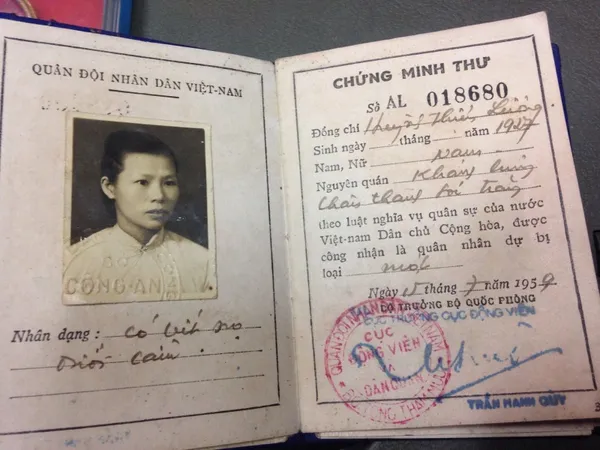 QUÂN ĐỘI NHÂN DÂN VIỆT-NAM
CÔNG AN
Nhân dạng : có vết sẹo
dưới cằm
CHỨNG MINH THƯ
Số AL 018680
Đồng chí Huỳnh Thiếu
Sinh ngày tháng năm 1927
Nam, Nữ Nam
Nguyên quán
theo luật nghĩa vụ quân sự của nước
Việt-nam Dân chủ Cộng hòa, được
công nhận là quân nhân dự bị
loại một
Ngày 15 tháng 7 năm 1959
BỘ TRƯỞNG BỘ QUỐC PHÒNG
CỤC TRƯỞNG CỤC ĐỘNG VIÊN
CỤC
ĐỘNG VIÊN
DÂN QUÂN
TRẦN MẠNH QUỲ